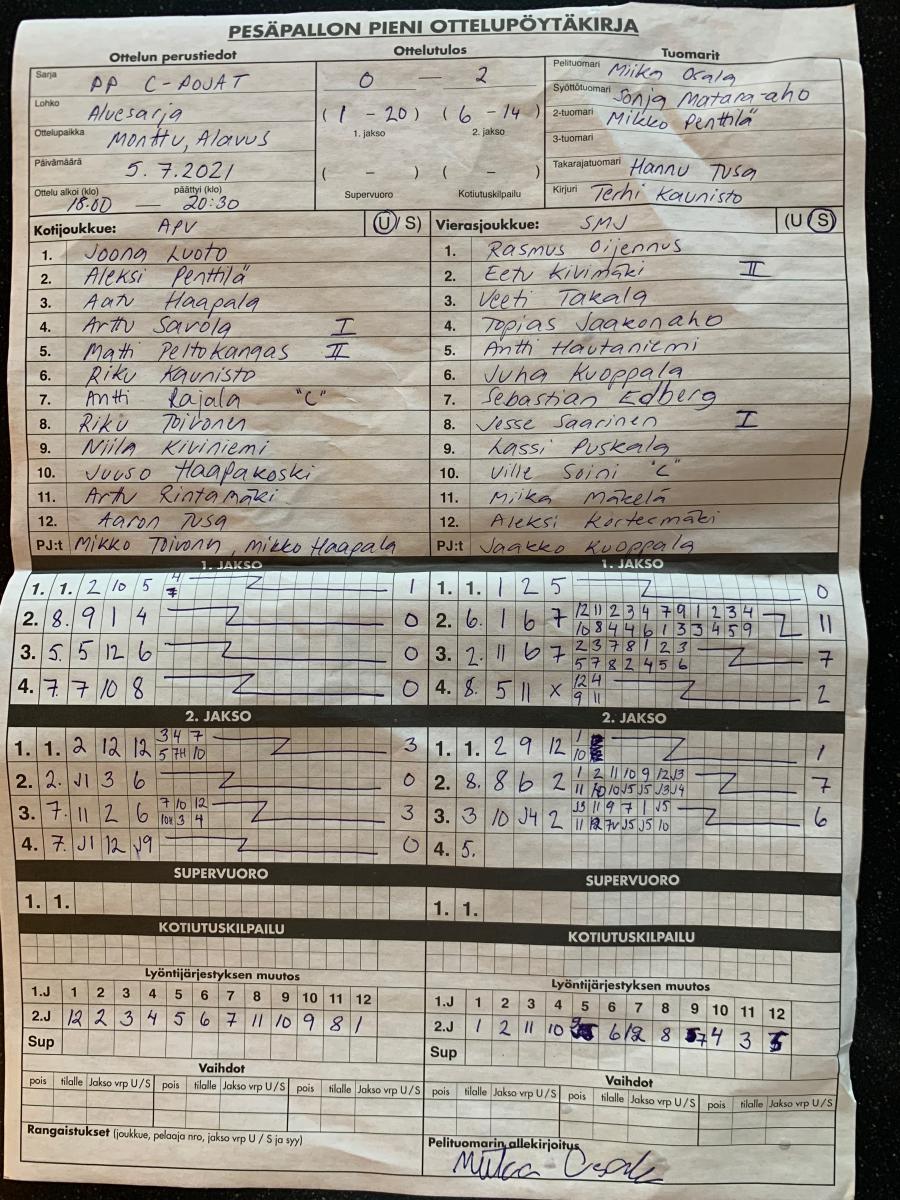 PESÄPALLON PIENI OTTELUPÖYTÄKIRJA
Ottelun perustiedot
Sarja PP C-POJAT
Lohko Aluesarja
Ottelupaikka Monttu, Alavus
Päivämäärä 5.7.2021
Ottelu alkoi (klo) päättyi (klo)
18.00 — 20:30
Ottelutulos
0 — 2
(1 - 20) (6 - 14)
1. jakso 2. jakso
( - ) ( - )
Supervuoro Kotiutuskilpailu
Tuomarit
Pelituomari Miika Osala
Syöttötuomari Sonja Matara-aho
2-tuomari Mikko Penttilä
3-tuomari
Takarajatuomari Hannu Tusa
Kirjuri Terhi Kaunisto
Kotijoukkue: APV (U/S)
1. Joona Luoto
2. Aleksi Penttilä
3. Aatu Haapala
4. Arttu Savola I
5. Matti Peltokangas II
6. Riku Kaunisto
7. Antti Rajala "C"
8. Riku Toivonen
9. Niila Kiviniemi
10. Juuso Haapakoski
11. Arttu Rintamäki
12. Aaron Tusa
PJ:t Mikko Toivonen, Mikko Haapala
Vierasjoukkue: SMJ (U/S)
1. Rasmus Oijennus
2. Eetu Kivimäki II
3. Veeti Takala
4. Topias Jaakonaho
5. Antti Hautaniemi
6. Juha Kuoppala
7. Sebastian Edberg
8. Jesse Saarinen I
9. Lassi Puskala
10. Ville Soini "C"
11. Miika Mäkelä
12. Aleksi Kortesmäki
PJ:t Jaakko Kuoppala
1. JAKSO
1. 1. 2 10 5 4 1
2. 8. 9 1 4 0
3. 5. 5 12 6 0
4. 7. 7 10 8 0
2. JAKSO
1. 1. 2 12 12 3 4 7 3
5 7H 10
2. 2. J1 3 6 0
3. 7. 11 2 6 7 10 12 3
10H 3 4
4. 7. J1 12 J9 0
SUPERVUORO
1. 1.
KOTIUTUSKILPAILU
Lyöntijärjestyksen muutos
1.J 1 2 3 4 5 6 7 8 9 10 11 12
2.J 12 2 3 4 5 6 7 11 10 9 8 1
Sup
Vaihdot
pois tilalle Jakso vrp U/S pois tilalle Jakso vrp U/S pois tilalle Jakso vrp U/S
Rangaistukset (joukkue, pelaaja nro, jakso vrp U / S ja syy)
1. JAKSO
1. 1. 1 2 5 0
2. 6. 1 6 7 12 11 2 3 4 7 9 1 2 3 4 11
10 8 4 4 6 1 3 3 4 5 9
3. 2. 11 6 7 2 3 7 8 1 2 3 7
5 7 8 2 4 5 6
4. 8. 5 11 x 12 4 2
9 11
2. JAKSO
1. 1. 2 9 12 1 1
10
2. 8. 8 6 2 1 2 11 10 9 12 J3 7
11 10 J5 J5 J3 J4
3. 3 10 J4 2 J3 11 9 7 1 J5 6
11 12 7V J5 J5 10
4. 5.
SUPERVUORO
1. 1.
KOTIUTUSKILPAILU
Lyöntijärjestyksen muutos
1.J 1 2 3 4 5 6 7 8 9 10 11 12
2.J 1 2 11 10 9 6 12 8 7 4 3 5
Sup
Vaihdot
pois tilalle Jakso vrp U/S pois tilalle Jakso vrp U/S pois tilalle Jakso vrp U/S
Pelituomarin allekirjoitus
Miika Osala